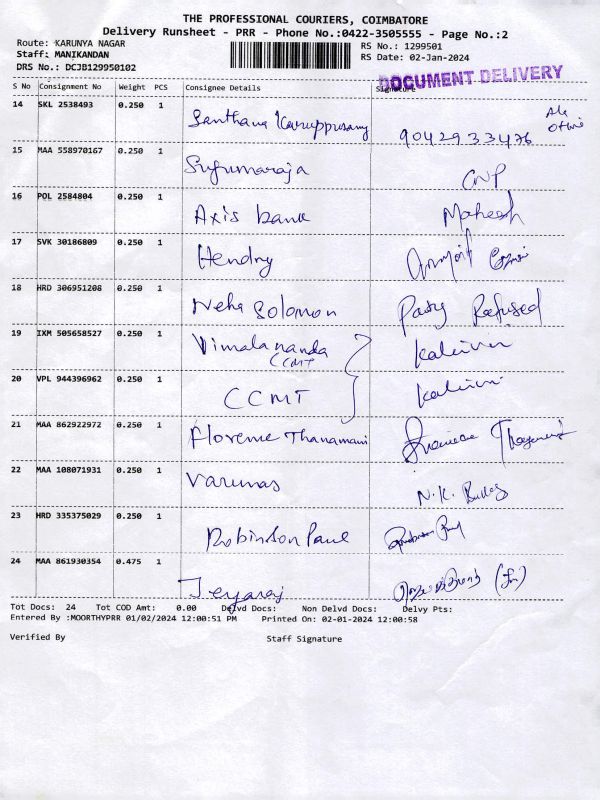 THE PROFESSIONAL COURIERS, COIMBATORE
Delivery Runsheet - PRR - Phone No.:0422-3505555 - Page No.:2
Route: KARUNYA NAGAR
Staff: MANIKANDAN
DRS No.: DCJB129950102
RS No.: 1299501
RS Date: 02-Jan-2024
DOCUMENT DELIVERY
S No Consignment No Weight PCS Consignee Details Signature
14 SKL 2538493 0.250 1 Santhana Karuppusamy 9042933476
15 MAA 558970167 0.250 1
16 POL 2584804 0.250 1 Axis bank Mahesh
17 SVK 30186809 0.250 1 Hendry
18 HRD 306951208 0.250 1 Neha Solomon Party Refused
19 IXM 505658527 0.250 1 Vimala nanda
CCMT
20 VPL 944396962 0.250 1 CCMT
21 MAA 862922972 0.250 1 Thanamani
22 MAA 108071931 0.250 1 Varunas N.K.
23 HRD 335375029 0.250 1 Robinson Paul
24 MAA 861930354 0.475 1 Jeyaraj
Tot Docs: 24 Tot COD Amt: 0.00 Delvd Docs: Non Delvd Docs: Delvy Pts:
Entered By :MOORTHYPRR 01/02/2024 12:00:51 PM Printed On: 02-01-2024 12:00:58
Verified By Staff Signature